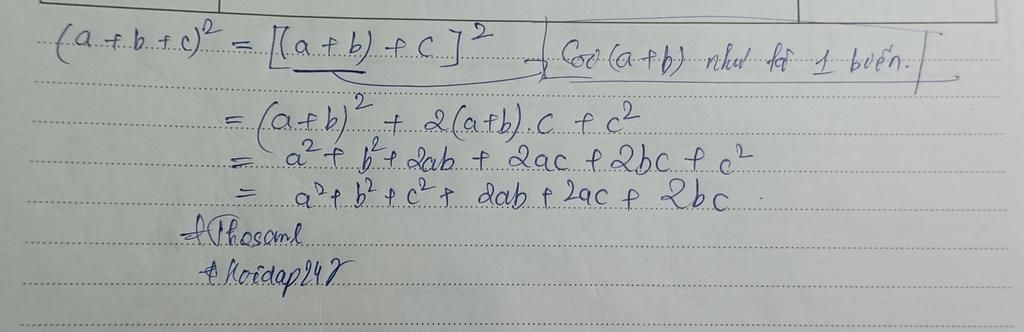 (a + b + c)² = [(a + b) + c]² → Coi (a+b) như là 1 biến.
= (a+b)² + 2(a+b).c + c²
= a² + b² + 2ab + 2ac + 2bc + c²
= a² + b² + c² + 2ab + 2ac + 2bc
#Hoidap247